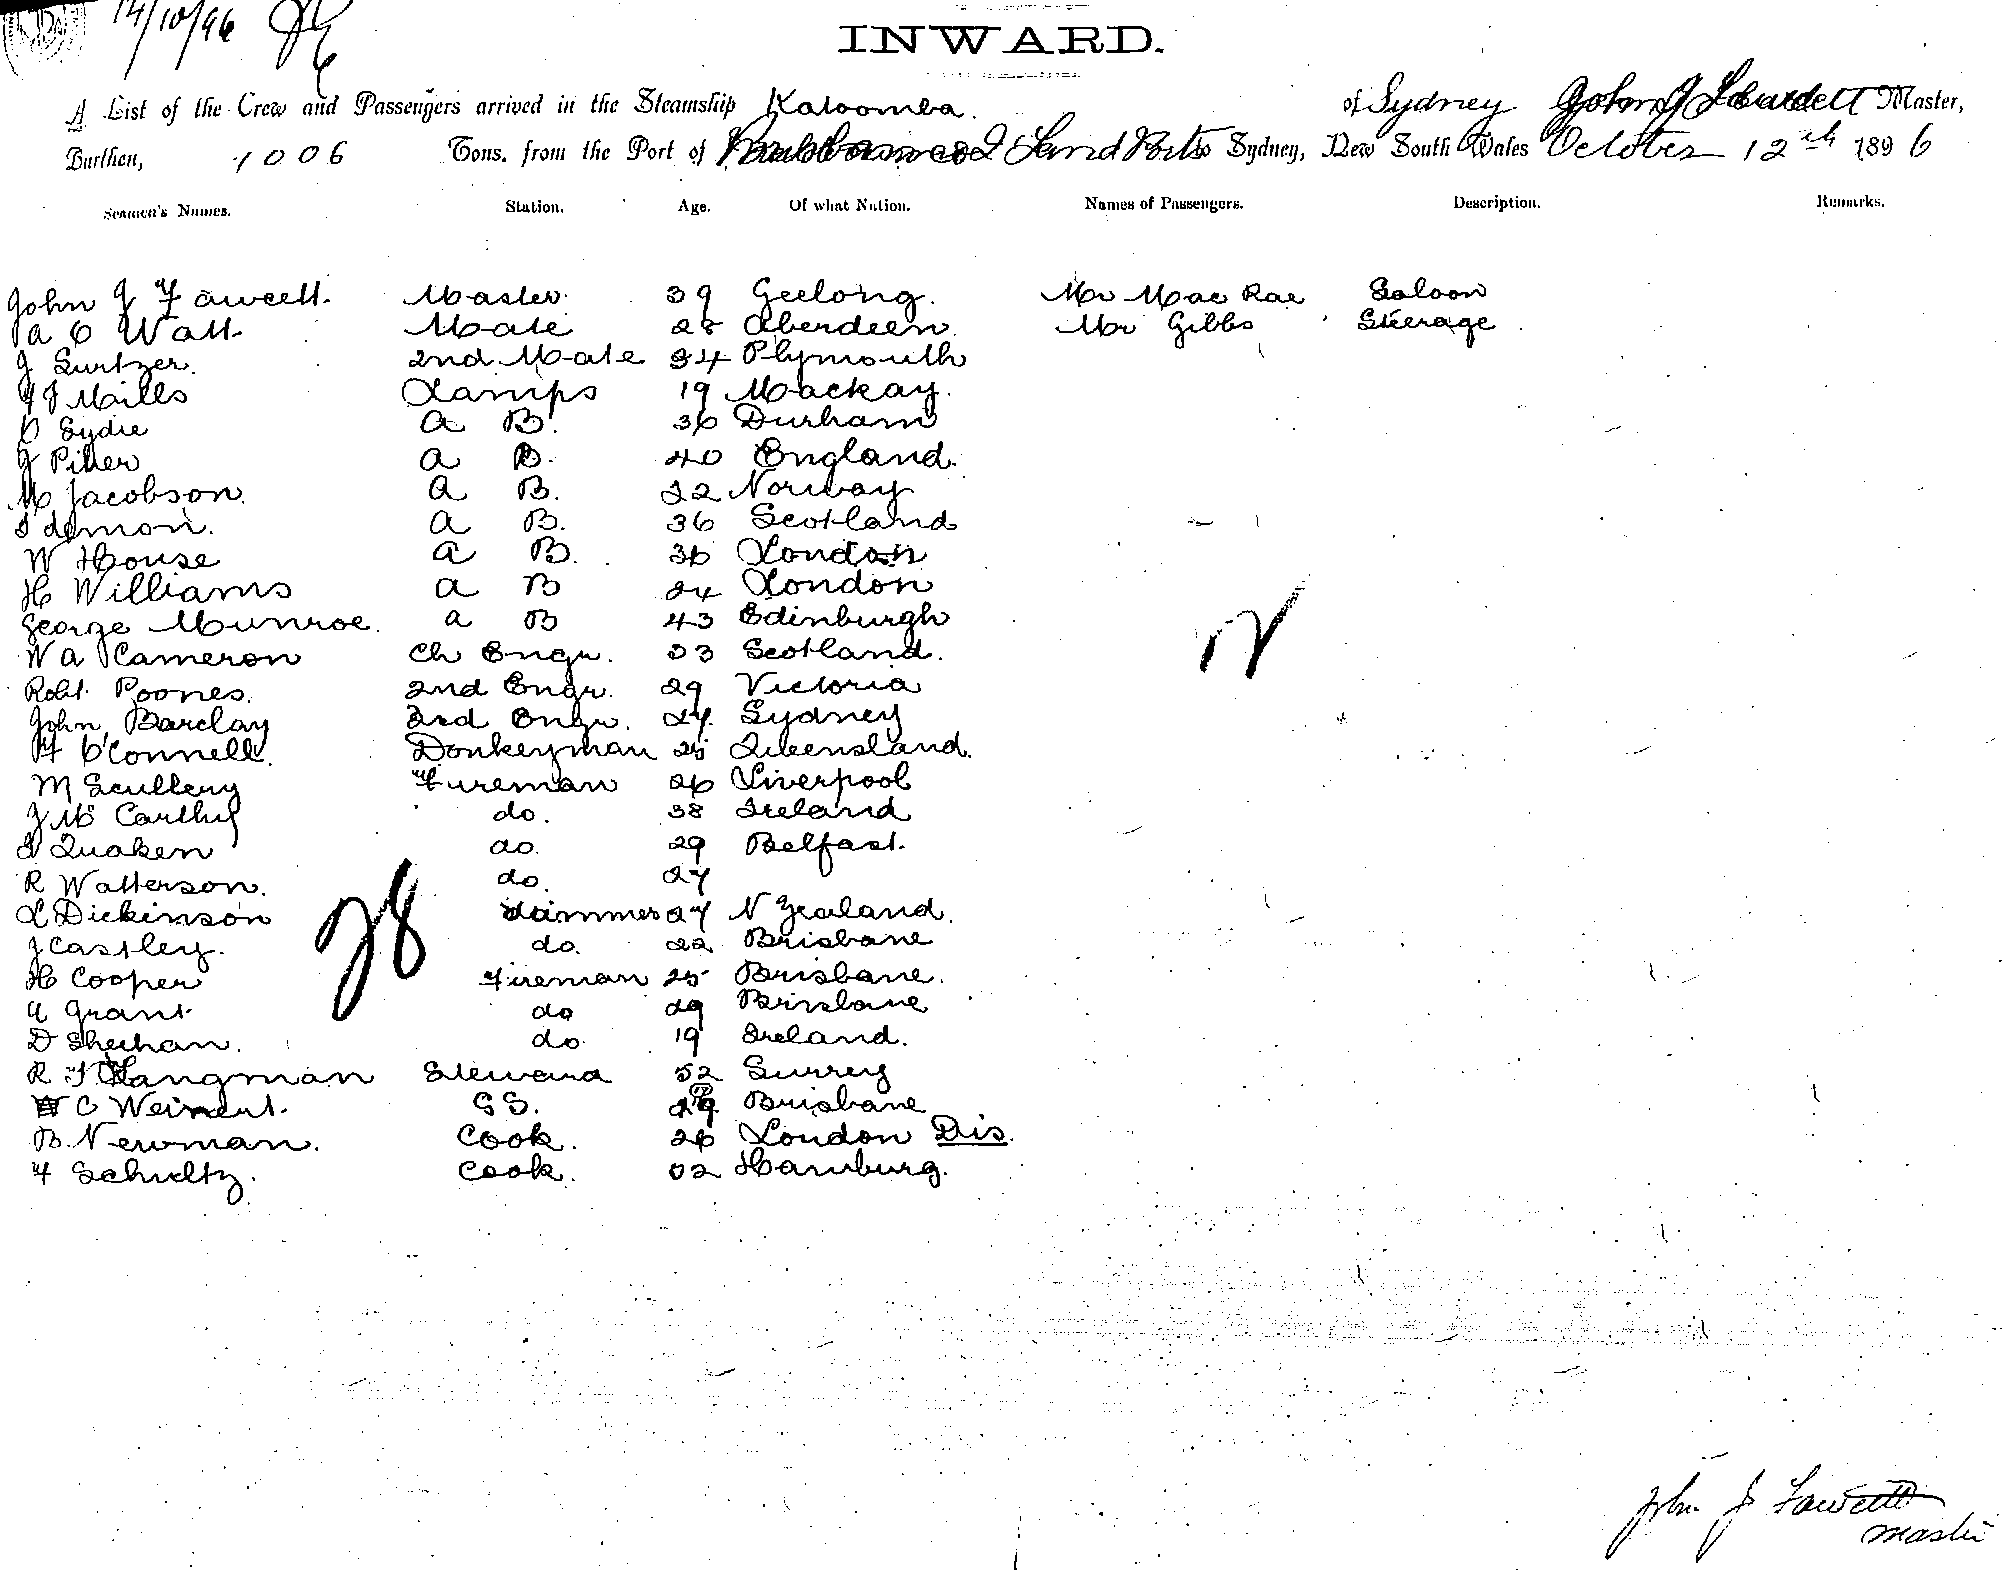 14/10/96
INWARD.
A List of the Crew and Passengers arrived in the Steamship Katoomba of Sydney John J Fawcett Master,
Burthen, 1006 Tons. from the Port of Sydney, New South Wales October 12th 1896
Seamen's Names. Station. Age. Of what Nation. Names of Passengers. Description. Remarks.
John J Fawcett. Master. 39 Geelong. Mr Mac Rae Saloon
A C Watt. Mate 28 Aberdeen. Mr Gibbs Steerage
J 2nd Mate 34 Plymouth
Mills Lamps 19 Mackay.
Sydie A B. 36 Durham
J A B. 40 England.
M Jacobson. A B. 22 Norway
A B. 36 Scotland
W House A B. 36 London
H Williams A B 24 London
George Munroe. A B 43 Edinburgh
W A Cameron Ch Engr. 33 Scotland.
Robt. Poones. 2nd Engr. 29 Victoria
John Barclay 3rd Engr. 27. Sydney
O'Connell. Donkeyman 25 Queensland.
M Scullery Fireman 26 Liverpool
J Mc Carthy do. 38 Ireland
Quaken do. 29 Belfast.
R Watterson. do. 27
L Dickinson Trimmer 27 N Zealand.
J Castley. do. 22 Brisbane
H Cooper Fireman 25 Brisbane.
A Grant do 29 Brisbane
D Sheehan. do 19 Ireland.
R Langman Steward 52 Surrey
C SS. Brisbane
B. Newman. Cook. 26 London Dis.
F Schultz. Cook. 32 Hamburg.
28
2
John J Fawcett
Master